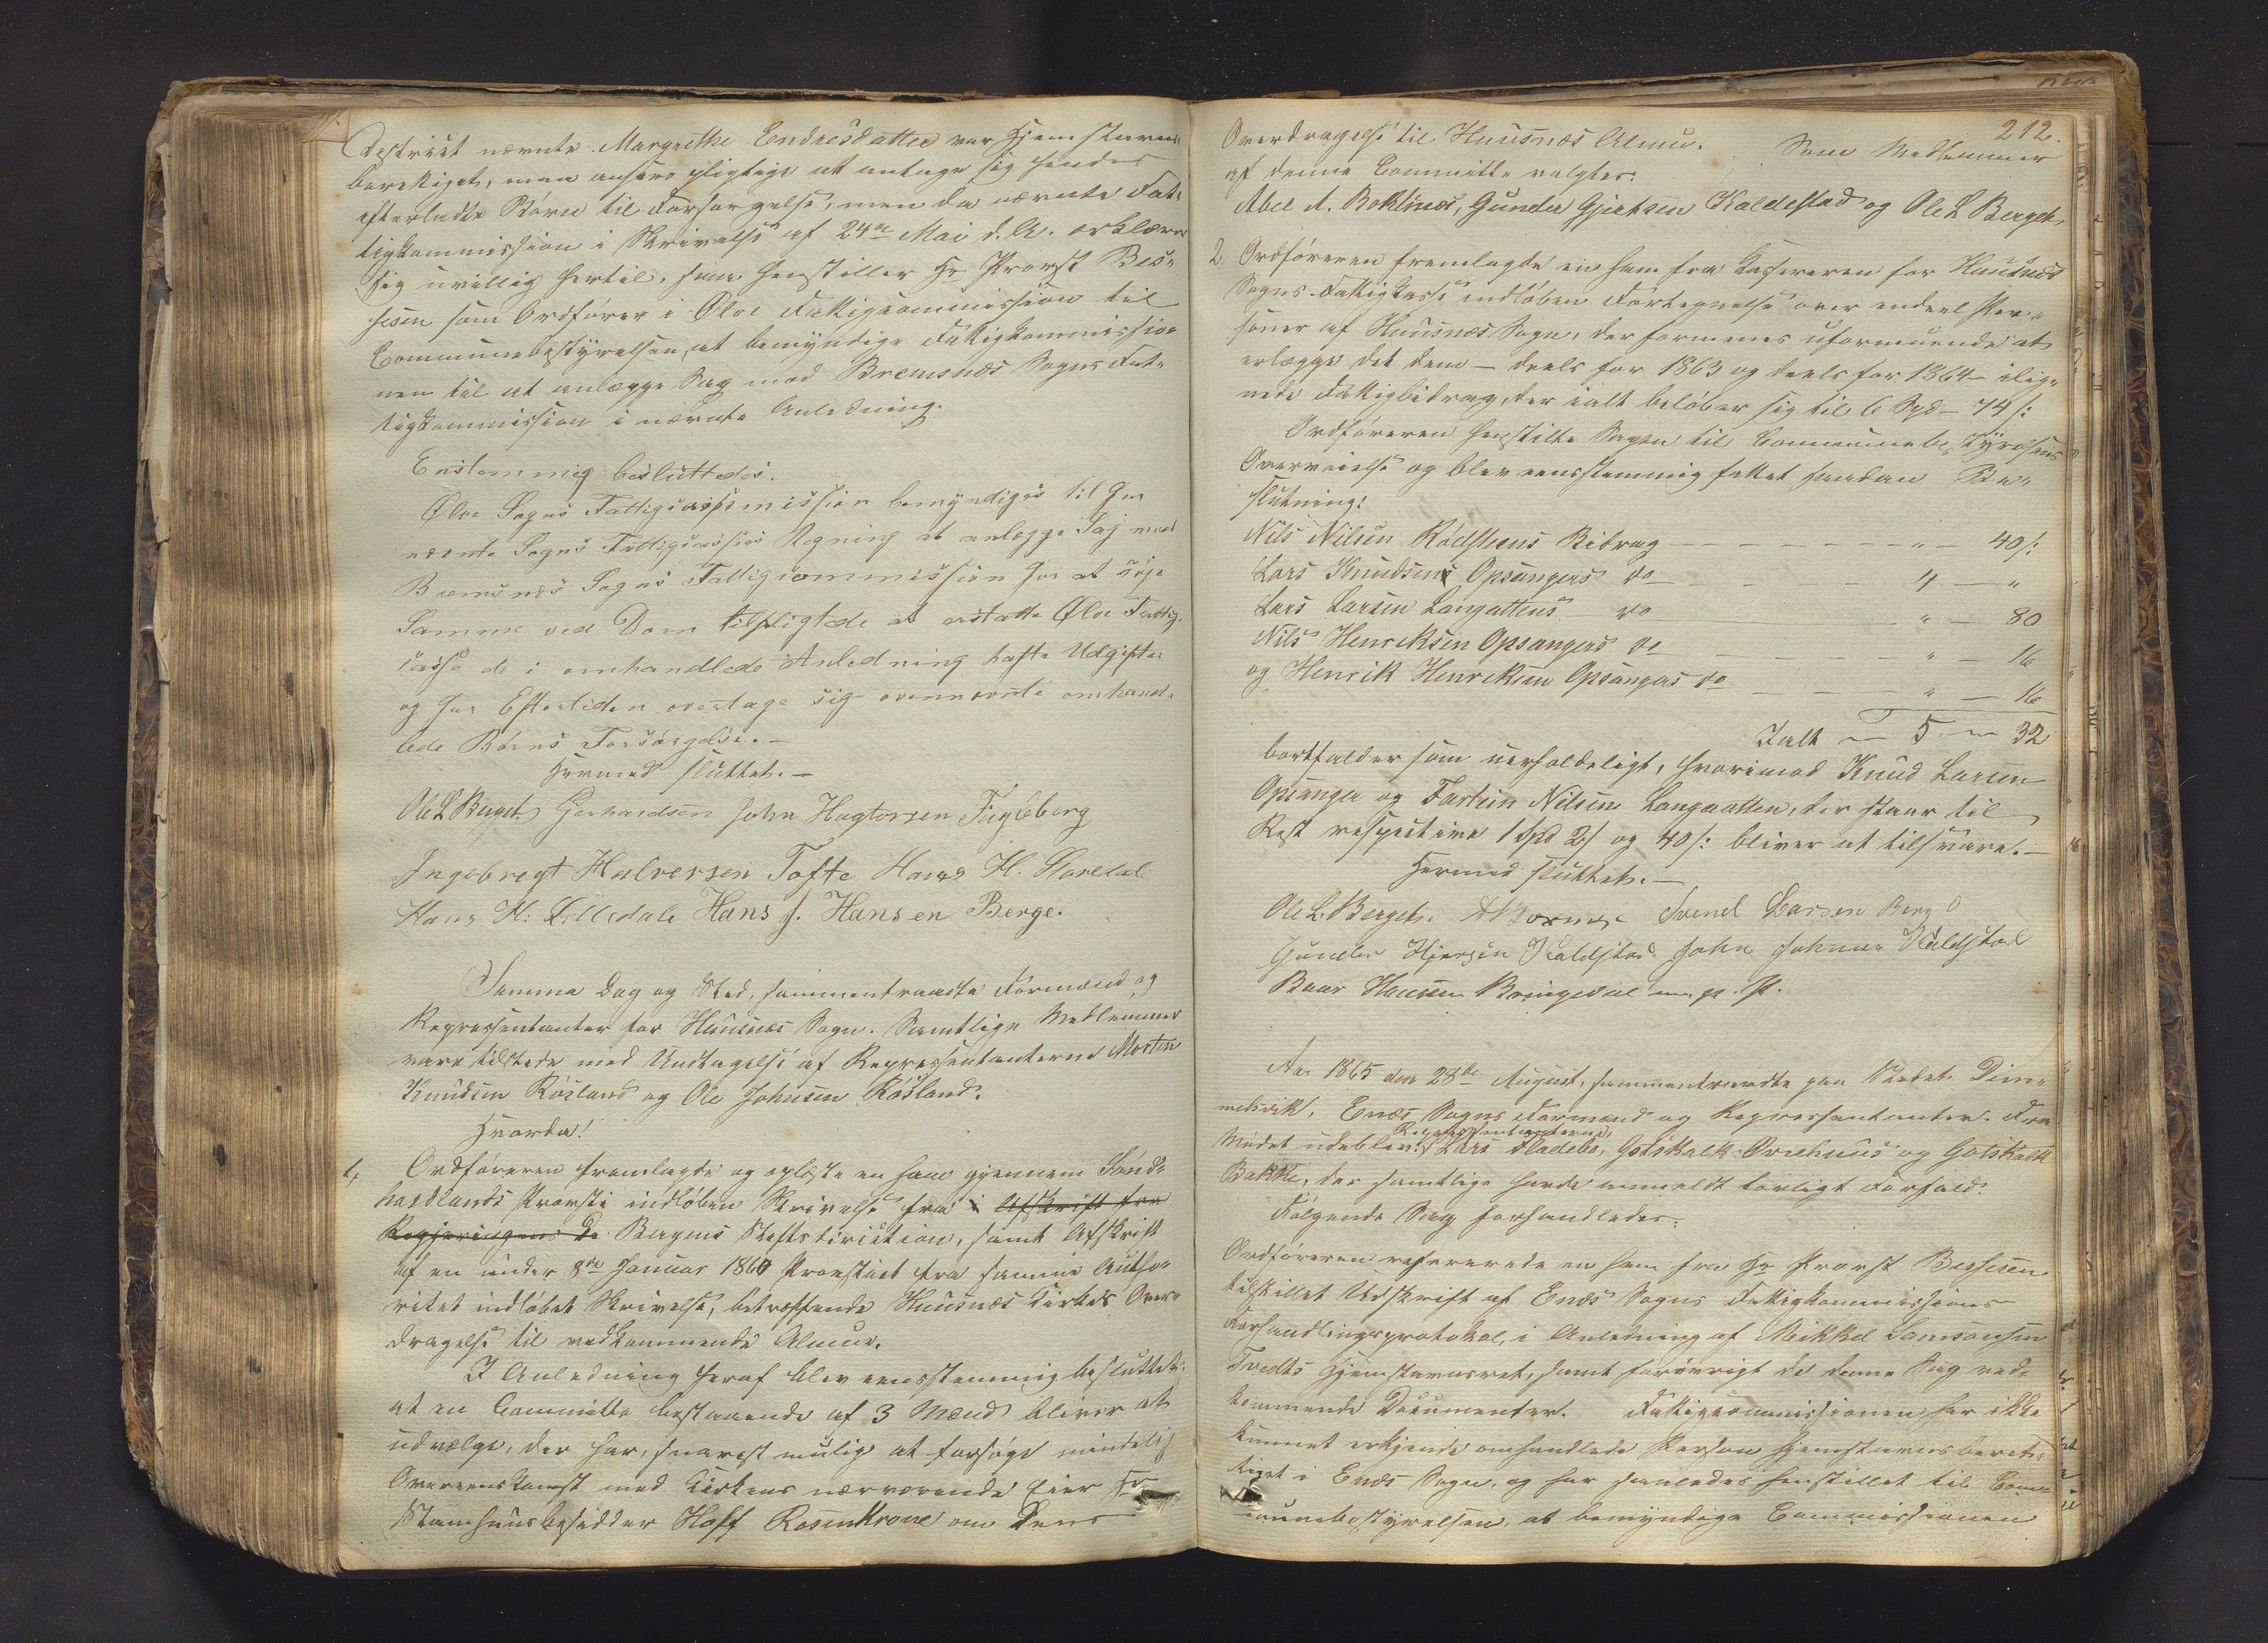 District nævnte Margrethe Endresdatter var Hjemstavns-
berettiget, man ansees pligtige at antage sig hendes
efterladte Børn til Forsørgelse, men da nævnte Fat-
tigkommission i Skrivelse af 24de Mai d. A. erklærer
sig uvillig hertil, saa henstiller Hr Provst Bes-
sesen som Ordfører i Ølve Fattigcommission til
Communebestyrelsen, at bemyndige Fattigkommissio-
nen til at anlægge Sag mod Bremsnæs Sogns Fat-
tigkommission i nævnte Anledning.
Enstemmig besluttedes.
Ølve Sogns Fattigcommission bemyndiges til for
nævnte Sogns Fattigcasses Regning at anlægge Sag mod
Bremsnæs Sogns Fattigcommission for at søge
Samme ved Dom tilpligtede at erstatte Ølve Fattig-
casse de i omhandlede Anledning hafte Udgifter
og for Eftertiden overtage sig ovennævnte omhand-
lede Børns Forsørgelse.-
Hermed sluttet.-
Ole L Berget. Gerhardsen John Hagtorsen Fugleberg
Ingebregt Halversen Tofte Hans H. Storedal
Hans H: Lilledale Hans J. Hansen Berge.
Samme Dag og Sted, sammentraadte Formænd og
Repræsentanter for Huusnæs Sogn. Samtlige Medlemmer
vare tilstede med Undtagelse af Repræsentanterne Morten
Knudsen Røsland og Ole Johnsen Røsland.
Hvorda!
1, Ordføreren fremlagde og oplæste en ham gjennem Sønd-
hordlands Provsti indløben Skrivelse fra i Afskrift fra
Regjeringens De Bergens Stiftsdirection, samt Afskrift
af en under 8de Januar 1860 Provstiet fra samme Autho-
ritet indløbet Skrivelse, betræffende Huusnæs Kirkes Over-
dragelse til vedkommende Almue.
I Anledning heraf blev eensstemmig besluttet:
at en Committe bestaaende af 3 Mænd bliver at
udvælge, der har, snarest mulig at forsøge mindelig
Overeenskomst med Kirkens nærværende Eier Hr
Stamhuusbesidder Hoff Rosenkrone om Dens
212.
Overdragelse til Huusnæs Almue. Som Medlemmer
af denne Committe valgtes:
Abel A. Boktnæs, Gunder Gjertsen Kaldestad og Ole L Berget,
2, Ordføreren fremlagde en ham fra Kassereren for Huusnæs
Sogns Fattigkasse indløben Fortegnelse over endeel Per-
soner af Huusnæs Sogn, der formenes uformuende at
erlægge det dem - deels for 1863 og deels for 1864 - ilig-
nede Fattigbidrag, der ialt beløber sig til 6 Spd - 74 s:
Ordføreren henstillte Sagen til Communebestyrelsens
Overveielse og blev eensstemmig fattet saadan Be-
slutning:
Nils Nilsen Rødsteens Bidrag - " - 40 s:
Lars Knudsens Opsangers do - 4 - "
Lars Larsen Langattens do - " - 80
Nils Henriksen Opsangers do - " - 16
og Henrik Henriksen Opsangers do - " - 16
Ialt - 5 - 32
bortfalder som uerholdeligt, hvorimod Knud Larsen
Opsanger og Torsten Nilsen Langaatten, der staar til
Rest respective 1 Spd 2 s og 40 s: bliver at tilsvare.-
Hermed sluttet.-
Ole L. Berget. Svend Larsen Berg
Gunder Hjersen Kaldstad John Johnsen Kaldstad
Baar Hansen Bringedal m. p. P.
Aar 1865 den 28de August, sammentraadte paa Stedet Dim-
melsvik, Enæs Sogns Formænd og Repræsentanter. Fra
Repræsentanterne,
Mødet udeblev: Lars Fladebø, Gotskalk Ovrehuus og Gotskalk
Bakke, der samtlige havde anmeldt lovligt Forfald.
Følgende Sag forhandledes:
Ordføreren refererede en ham fra Hr Provst Bessesen
tilstillet Udskrift af Enæs Sogns Fattigkommissions
Forhandlingsprotokol, i Anledning af Mikkel Samsonsen
Tvedts Hjemstavnsret, samt forøvrigt de denne Sag ved-
kommende Documenter. Fattigcommissionen har ikke
kunnet erkjende omhandlede Person hjemstavnsberet-
tiget i Enæs Sogn, og har saaledes henstillet til Com-
munebestyrelsen, at bemyndige Commissionen